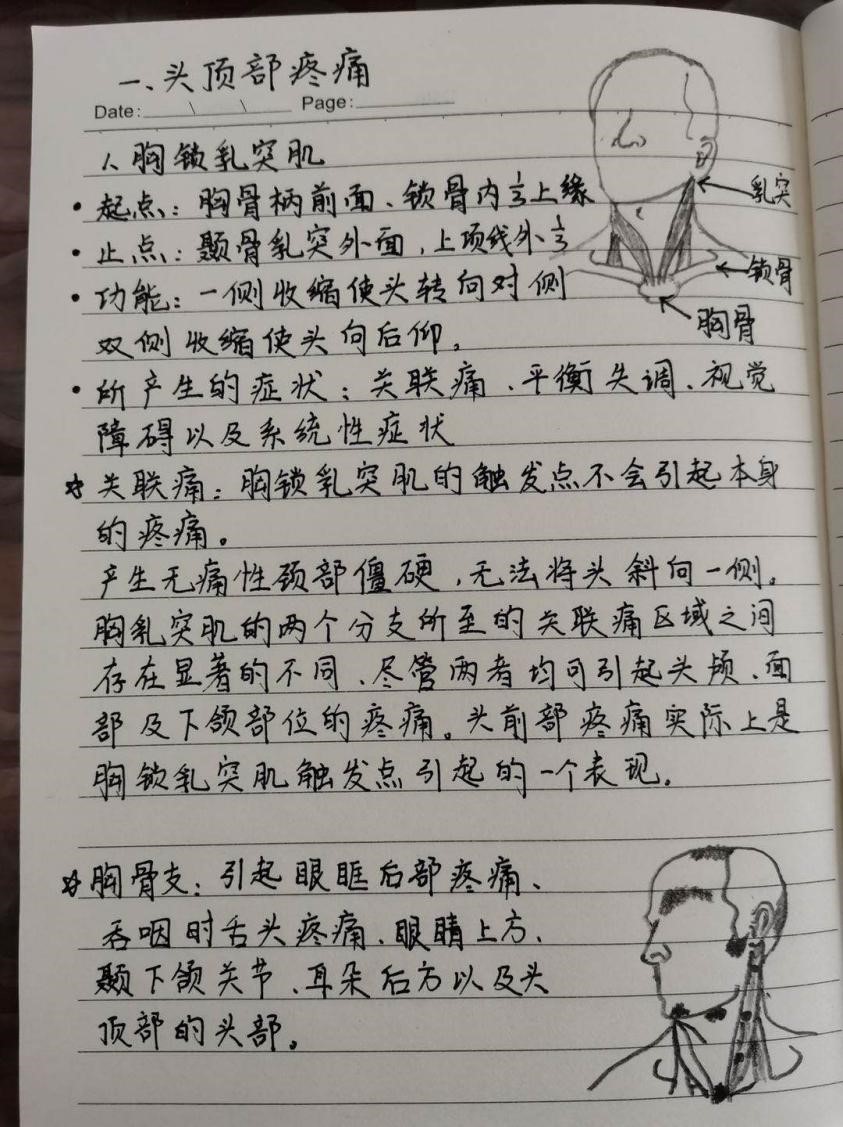 一、头顶部疼痛
Date: \ \ Page:
1、胸锁乳突肌
• 起点：胸骨柄前面、锁骨内⅓上缘
乳突
• 止点：颞骨乳突外面，上项线外⅓
锁骨
• 功能：一侧收缩使头转向对侧
胸骨
双侧收缩使头向后仰。
• 所产生的症状：关联痛、平衡失调、视觉
障碍以及系统性症状
☆ 关联痛：胸锁乳突肌的触发点不会引起本身
的疼痛。
产生无痛性颈部僵硬，无法将头斜向一侧。
胸乳突肌的两个分支所至的关联痛区域之间
存在显著的不同、尽管两者均可引起头颅、面
部及下颌部位的疼痛。头前部疼痛实际上是
胸锁乳突肌触发点引起的一个表现。
☆ 胸骨支：引起眼眶后部疼痛、
吞咽时舌头疼痛、眼睛上方、
颞下颌关节、耳朵后方以及头
顶部的头部。